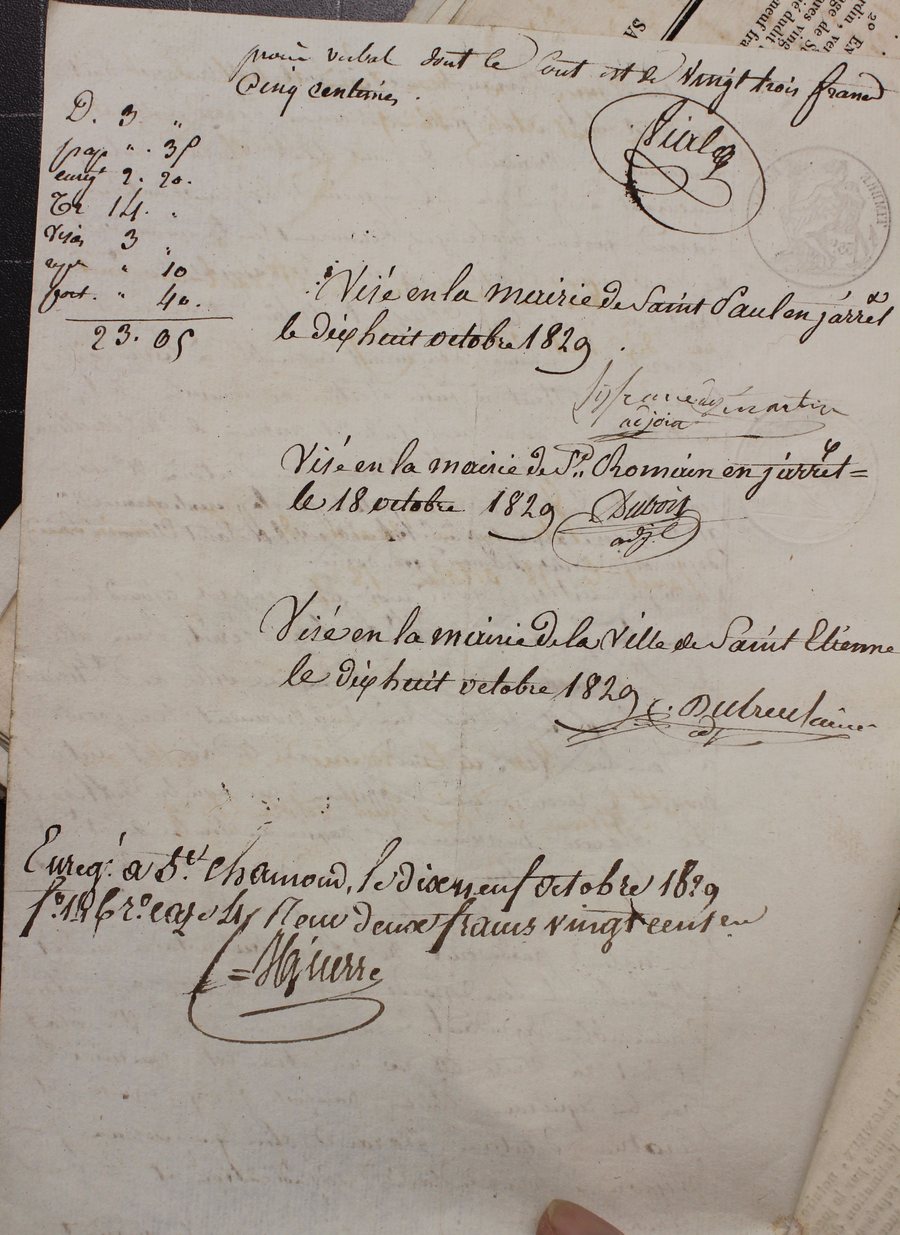 2° En
SA
procès verbal dont le Cout est de vingt trois francs
Cinq centimes.
Vial
D. 3 "
pap " . 35
enregt 2. 20.
Tr 14. "
Visas 3 "
" 10
port. " 40.
23. 05
TIMBRE
Visé en la mairie de Saint Paul en jarret
le dix huit octobre 1829.
martin
adjoint
Visé en la mairie de St. Romain en jarret =
le 18 octobre 1829 Dubois
adj
Visé en la mairie de la Ville de Saint Etienne
le dix huit octobre 1829
adj
Enreg. a St. Chamond, le dix neuf octobre 1829
fo. 186 ro. case 4 Reçu deux francs vingt cent